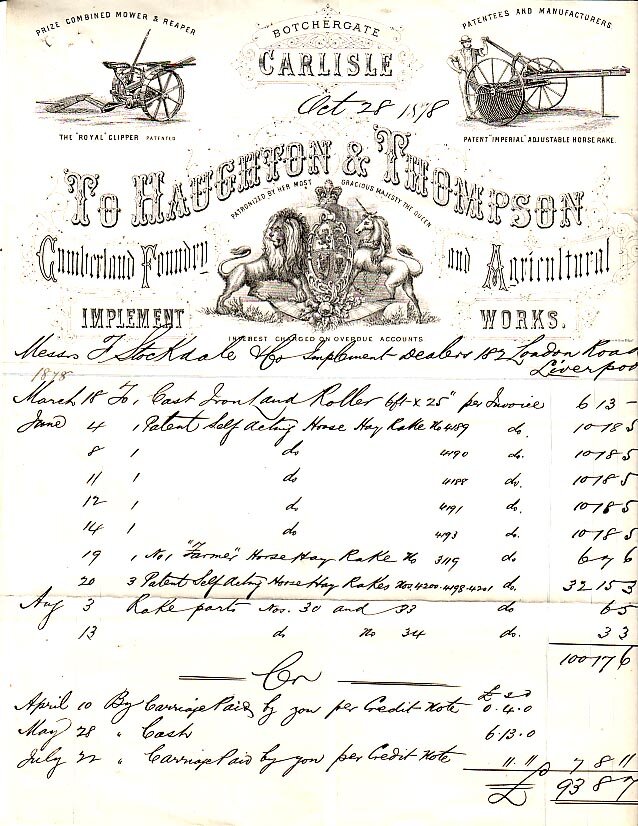 PRIZE COMBINED MOWER & REAPER
BOTCHERGATE
PATENTEES AND MANUFACTURERS
CARLISLE
Oct 28 1878
THE "ROYAL" CLIPPER PATENTED
PATENT "IMPERIAL" ADJUSTABLE HORSE RAKE.
TO HAUGHTON & THOMPSON
PATRONIZED BY HER MOST GRACIOUS MAJESTY THE QUEEN
Cumberland Foundry and Agricultural
IMPLEMENT WORKS.
INTEREST CHARGED ON OVERDUE ACCOUNTS
Messrs F Stockdale & Co Implement Dealers 182 London Road
Liverpoo
1878
March 18 To 1 Cast Iron Land Roller 6ft x 25" per Invoice 6 13 -
June 4 1 Patent Self Acting Horse Hay Rake No 4189 do. 10 18 5
8 1 do 4190 do. 10 18 5
11 1 do 4188 do. 10 18 5
12 1 do 4191 do. 10 18 5
14 1 do 4193 do. 10 18 5
19 1 No 1 "Farmer" Horse Hay Rake No 3119 do 6 7 6
20 3 Patent Self Acting Horse Hay Rakes Nos 4200-4198-4201 do. 32 15 3
Aug 3 Rake parts Nos. 30 and 33 do 6 5
13 do No 34 do. 3 3
100 17 6
Cr
£ s d
April 10 By Carriage Paid by you per Credit Note 0.4.0
May 28 " Cash 6.13.0
July 22 " Carriage Paid by you per Credit Note 11.11 7 8 11
£ 93 8 7